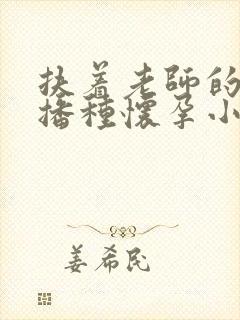 扶着老師的
播種懷孕小
姜希民